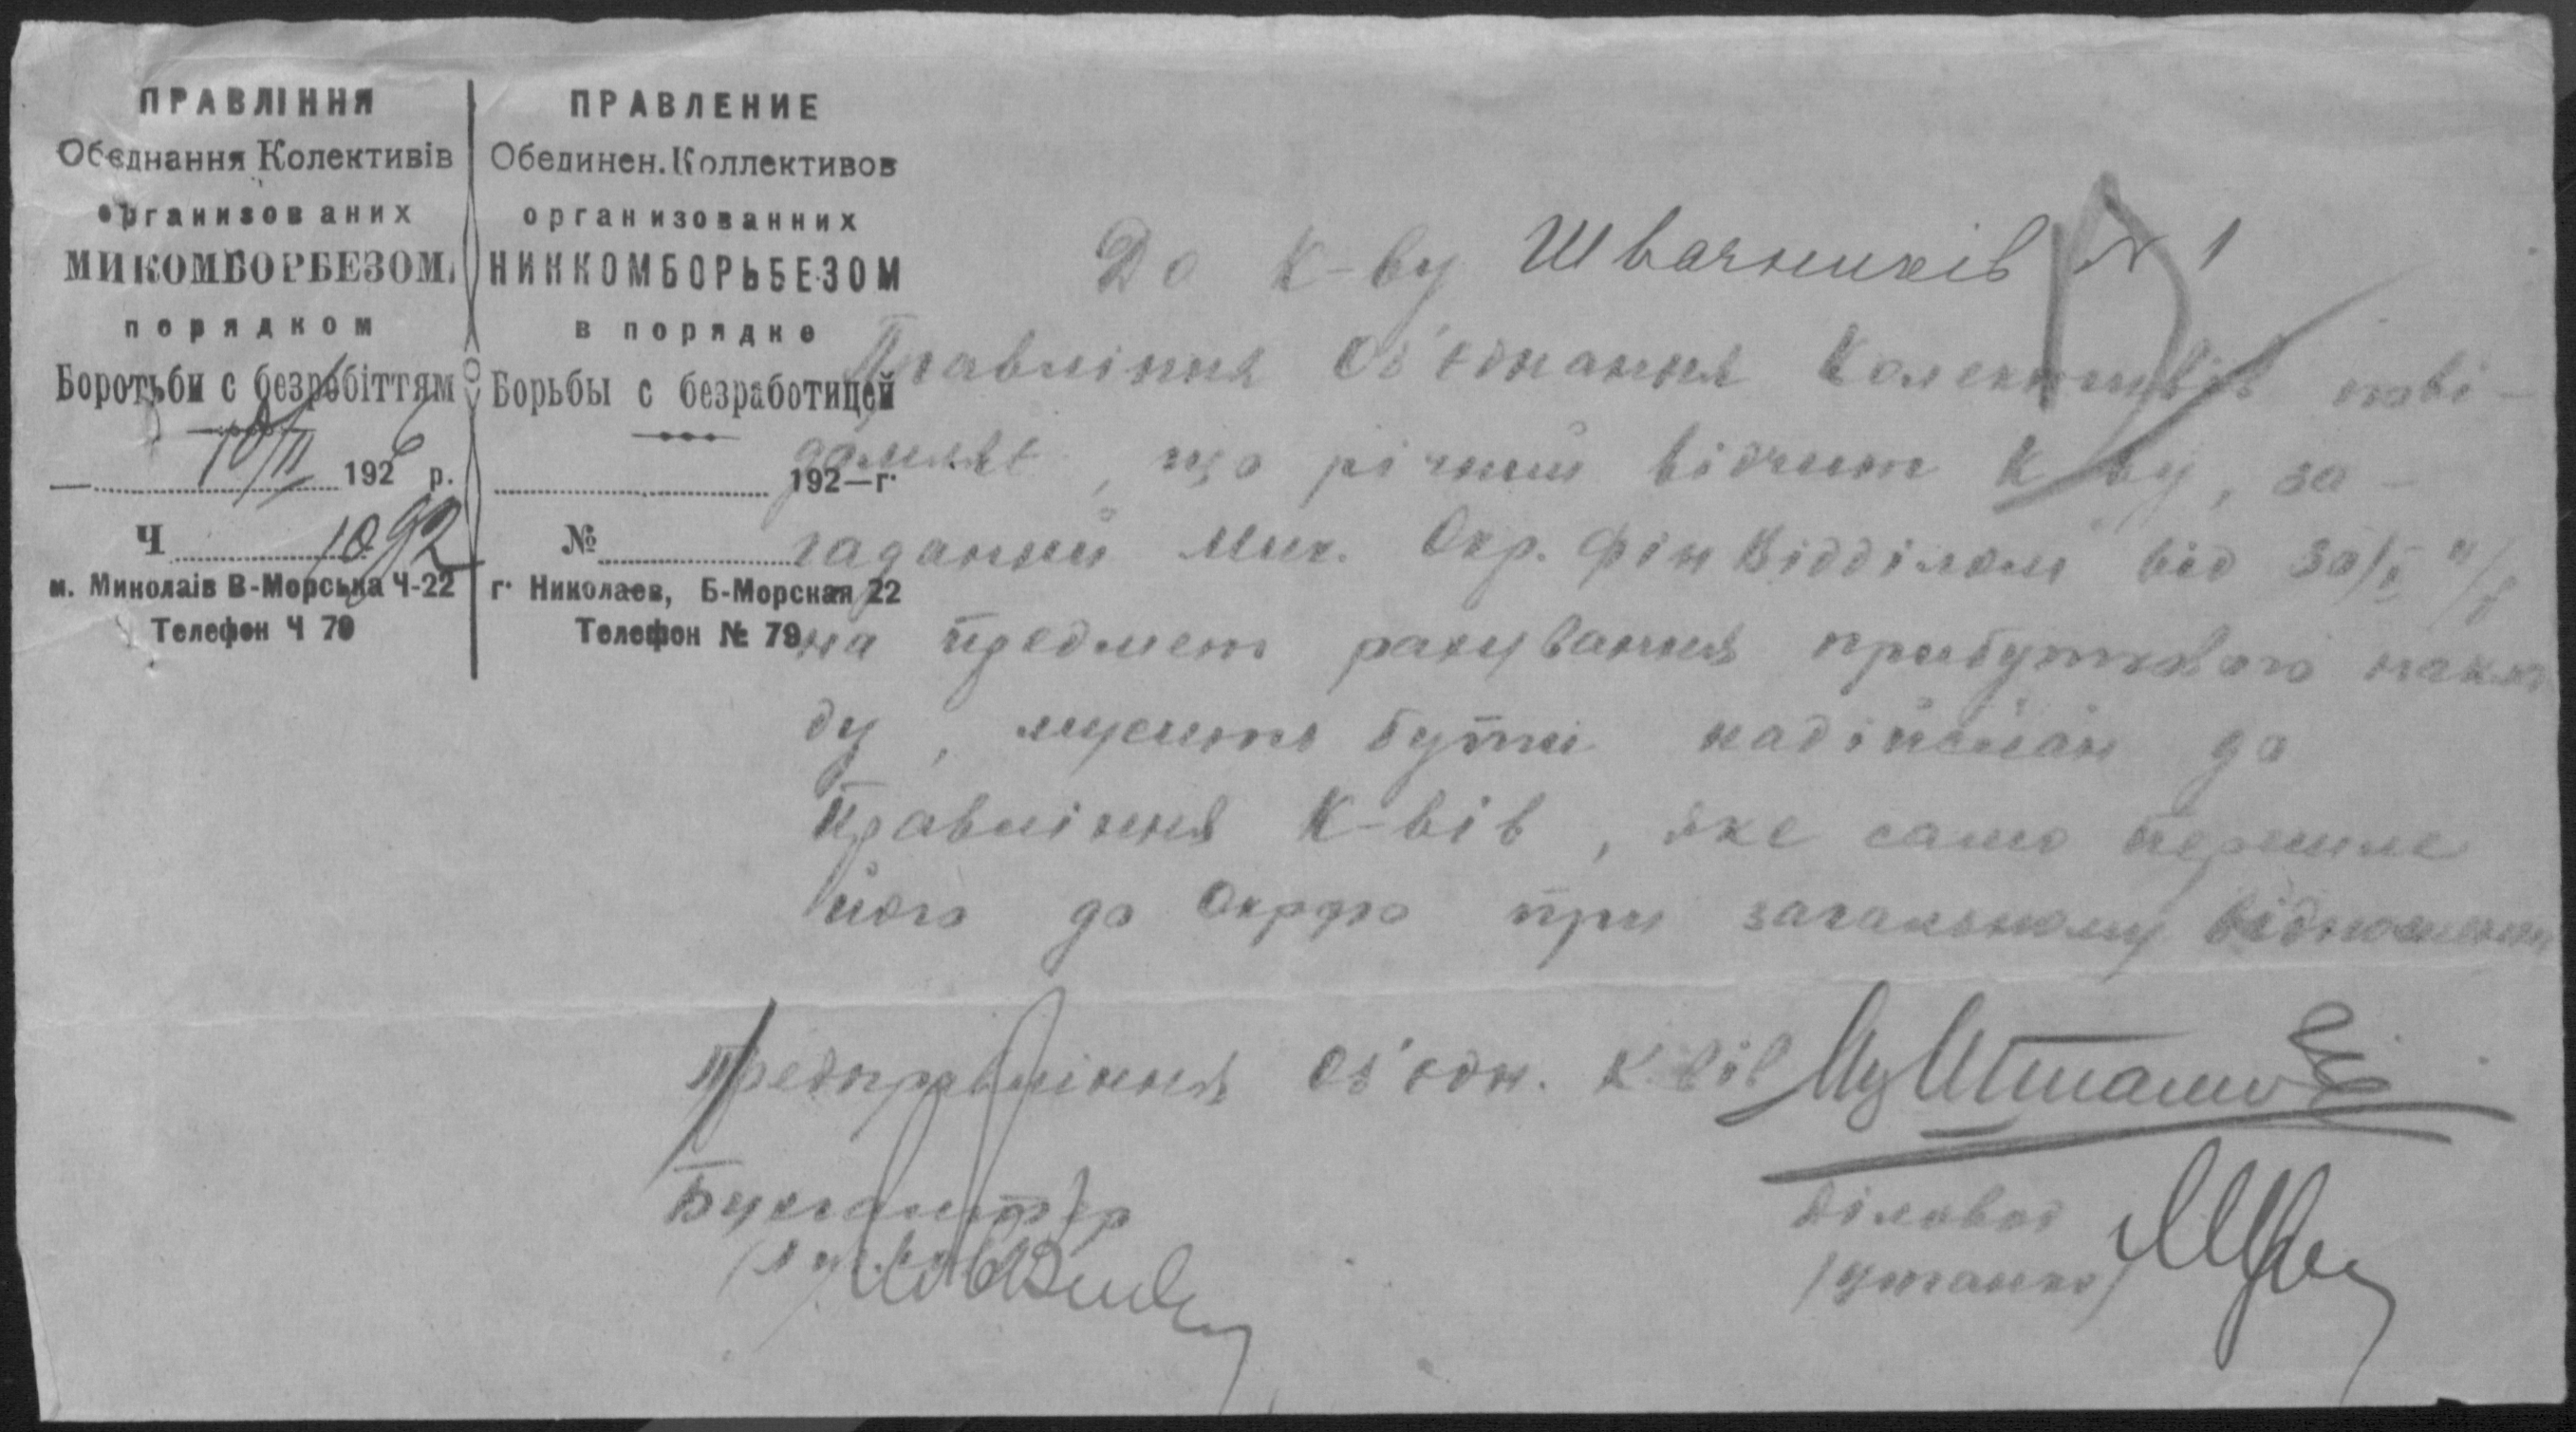 ПРАВЛІННЯ
Обєднання Колективів
организованих
МИКОМБОРБЕЗОМ
порядком
Боротьби с безробіттям
10/II 1926 р.
Ч 1092
м. Миколаів В-Морська Ч-22
Телефон Ч 79
ПРАВЛЕНИЕ
Обединен. Коллективов
организованних
НИККОМБОРЬБЕЗОМ
в порядке
Борьбы с безработицей
192—г.
№
г. Николаев, Б-Морская 22
Телефон № 79
До К-ву Швачників № 1
Правління Об'єднання Колективів пові-
домляє, що річний відчит К-ву, за-
гаданий Мик. Окр. Фінвідділом від 30/I
на предмет рахування прибуткового накла
ду, мусить бути надіслан до
Правління К-вів, яке само перешле
його до Окрфо при загальному відношенні
Предправління Об'єдн. К-вів
Бухгальтер
Діловод